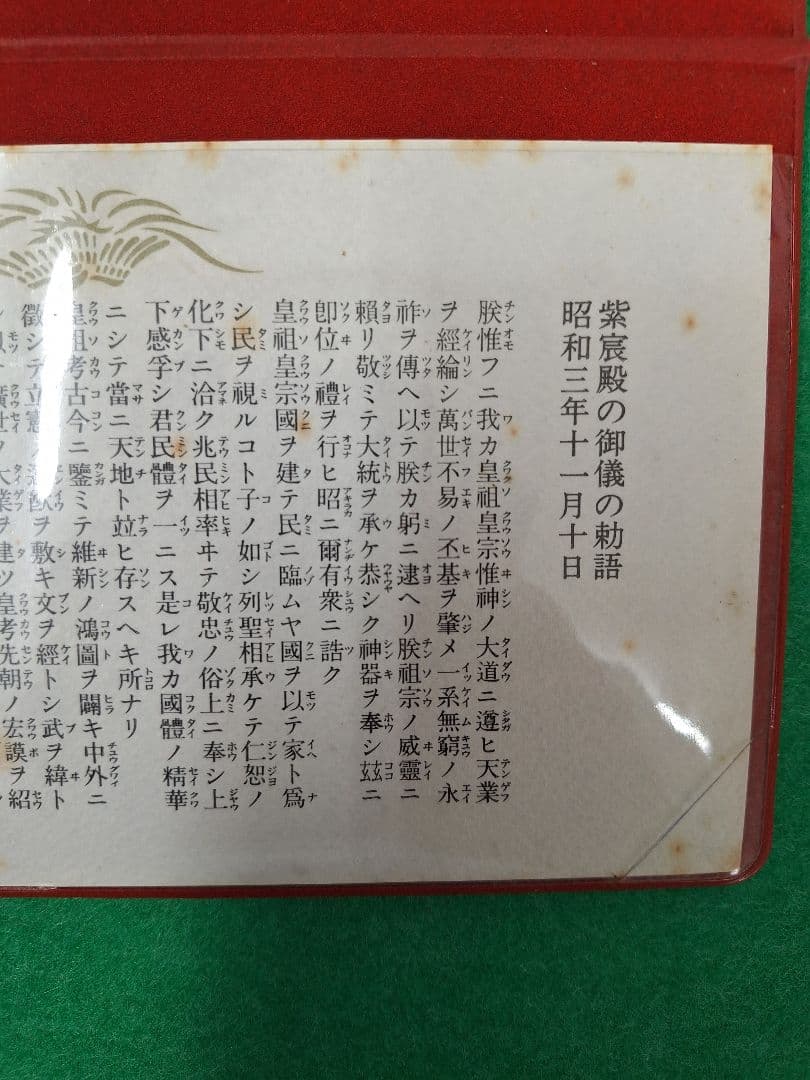 紫宸殿の御儀の勅語
昭和三年十一月十日
朕惟フニ我カ皇祖皇宗惟神ノ大道ニ遵ヒ天業
ヲ經綸シ萬世不易ノ丕基ヲ肇メ一系無窮ノ永
祚ヲ傳ヘ以テ朕カ躬ニ逮ヘリ朕祖宗ノ威靈ニ
賴リ敬ミテ大統ヲ承ケ恭シク神器ヲ奉シ玆ニ
卽位ノ禮ヲ行ヒ昭ニ爾有衆ニ誥ク
皇祖皇宗國ヲ建テ民ニ臨ムヤ國ヲ以テ家ト爲
シ民ヲ視ルコト子ノ如シ列聖相承ケテ仁恕ノ
化下ニ洽ク兆民相率ヰテ敬忠ノ俗上ニ奉シ上
下感孚シ君民體ヲ一ニス是レ我カ國體ノ精華
ニシテ當ニ天地ト竝ヒ存スヘキ所ナリ
皇祖考古今ニ鑒ミテ維新ノ鴻圖ヲ闢キ中外ニ
徵シテ立憲ノ遠猷ヲ敷キ文ヲ經トシ武ヲ緯ト
世ノ大業ヲ建ツ皇考先朝ノ宏謨ヲ紹